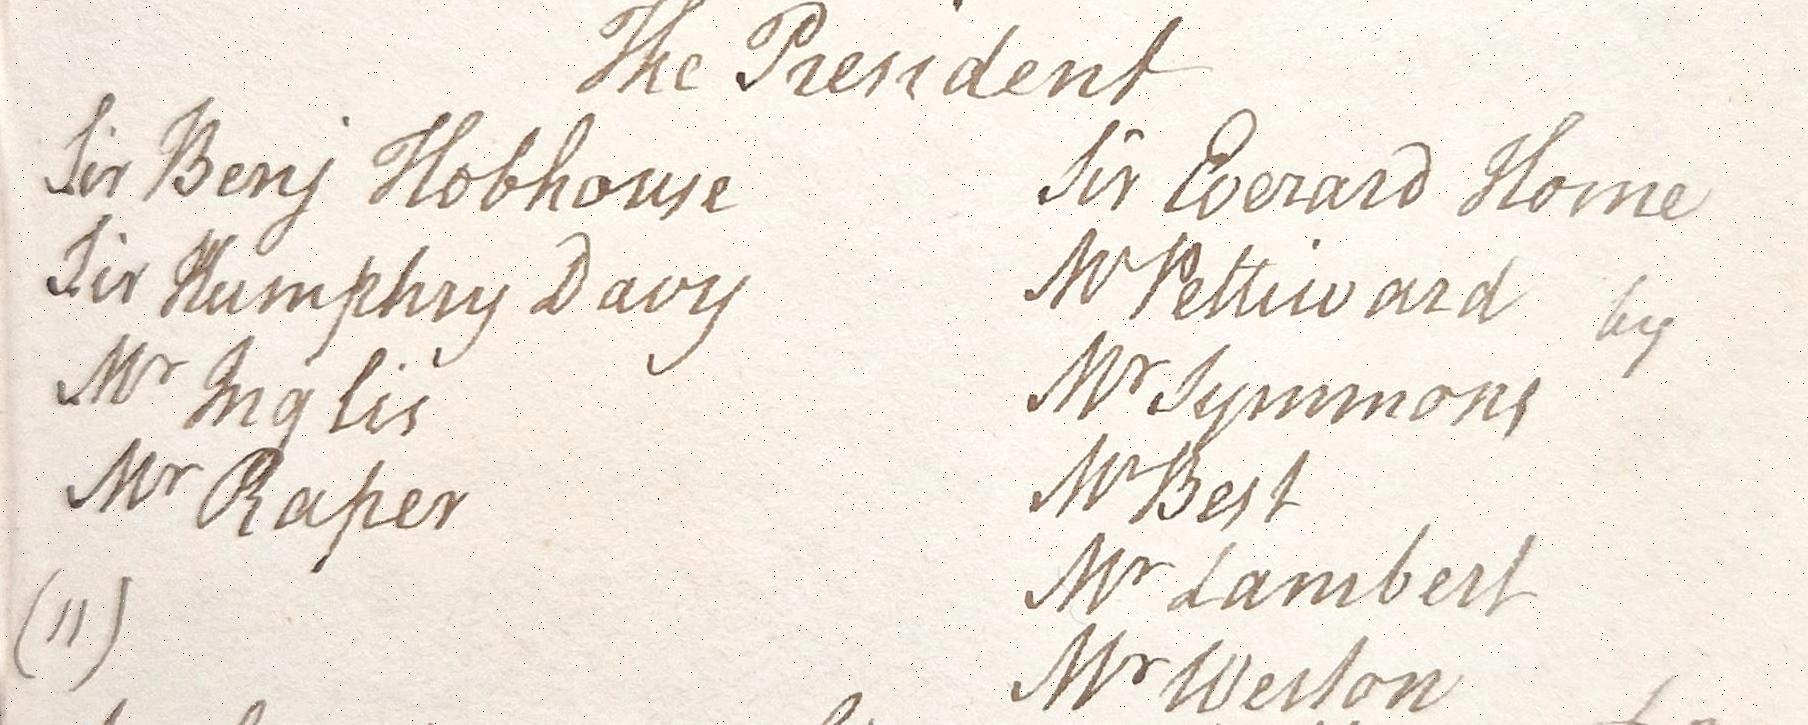 The President
Sir Benj Hobhouse
Sir Humphry Davy
Mr Inglis
Mr Raper
(11)
Sir Everard Home
Mr Pettiward by
Mr Symmons
Mr Best
Mr Lambert
Mr Weston